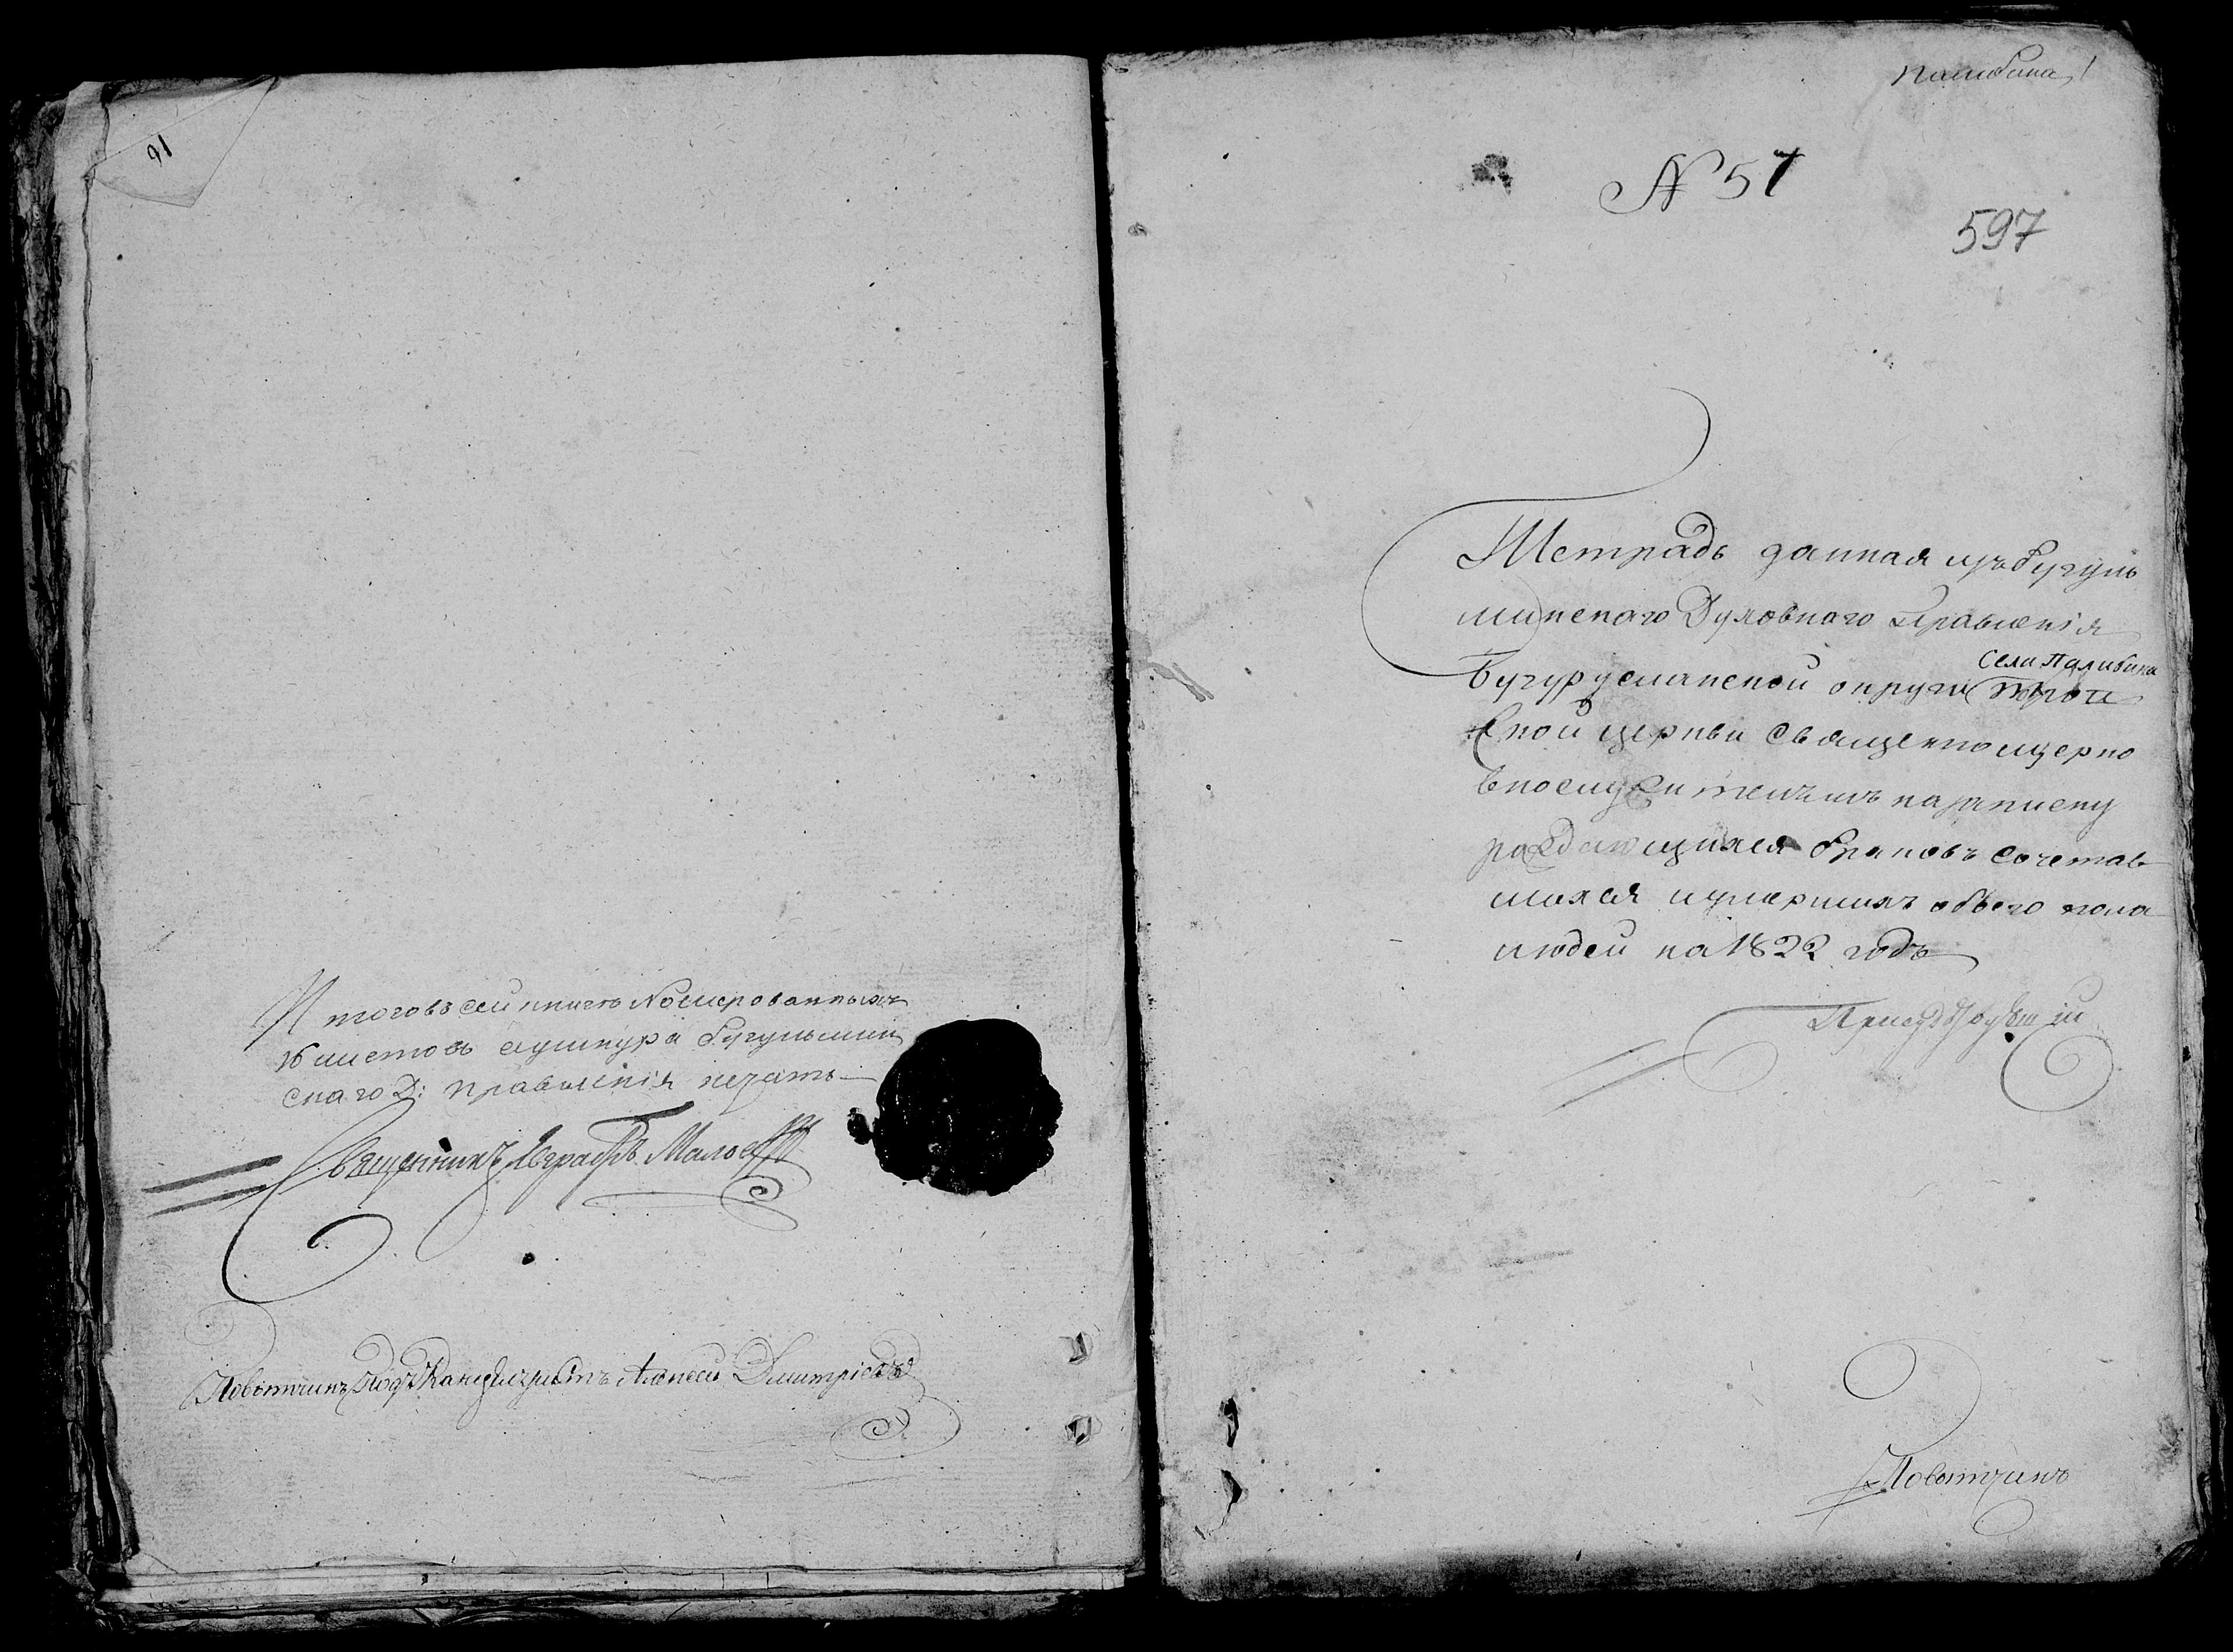 16
Итого въ сей книге Номерованныхъ
16 листовъ ашнура бугульмин
скаго Д: правленія печать
Священникъ Евграфъ Малов
Повытчикъ Подканцеляристъ Алексей Дмитріевъ
Палибина 1
N 57
597
Тетрадь данная изъ бугуль
минскаго Духовнаго Правленія
Села Палибина
Бугурусланской округи Трои
цкой церкви священноцерко
внослужителямъ на записку
раждающихся браковъ сочетав
шихся и умершихъ обоего пола
людей на 1822 годъ
Присудствующій
Повытчикъ